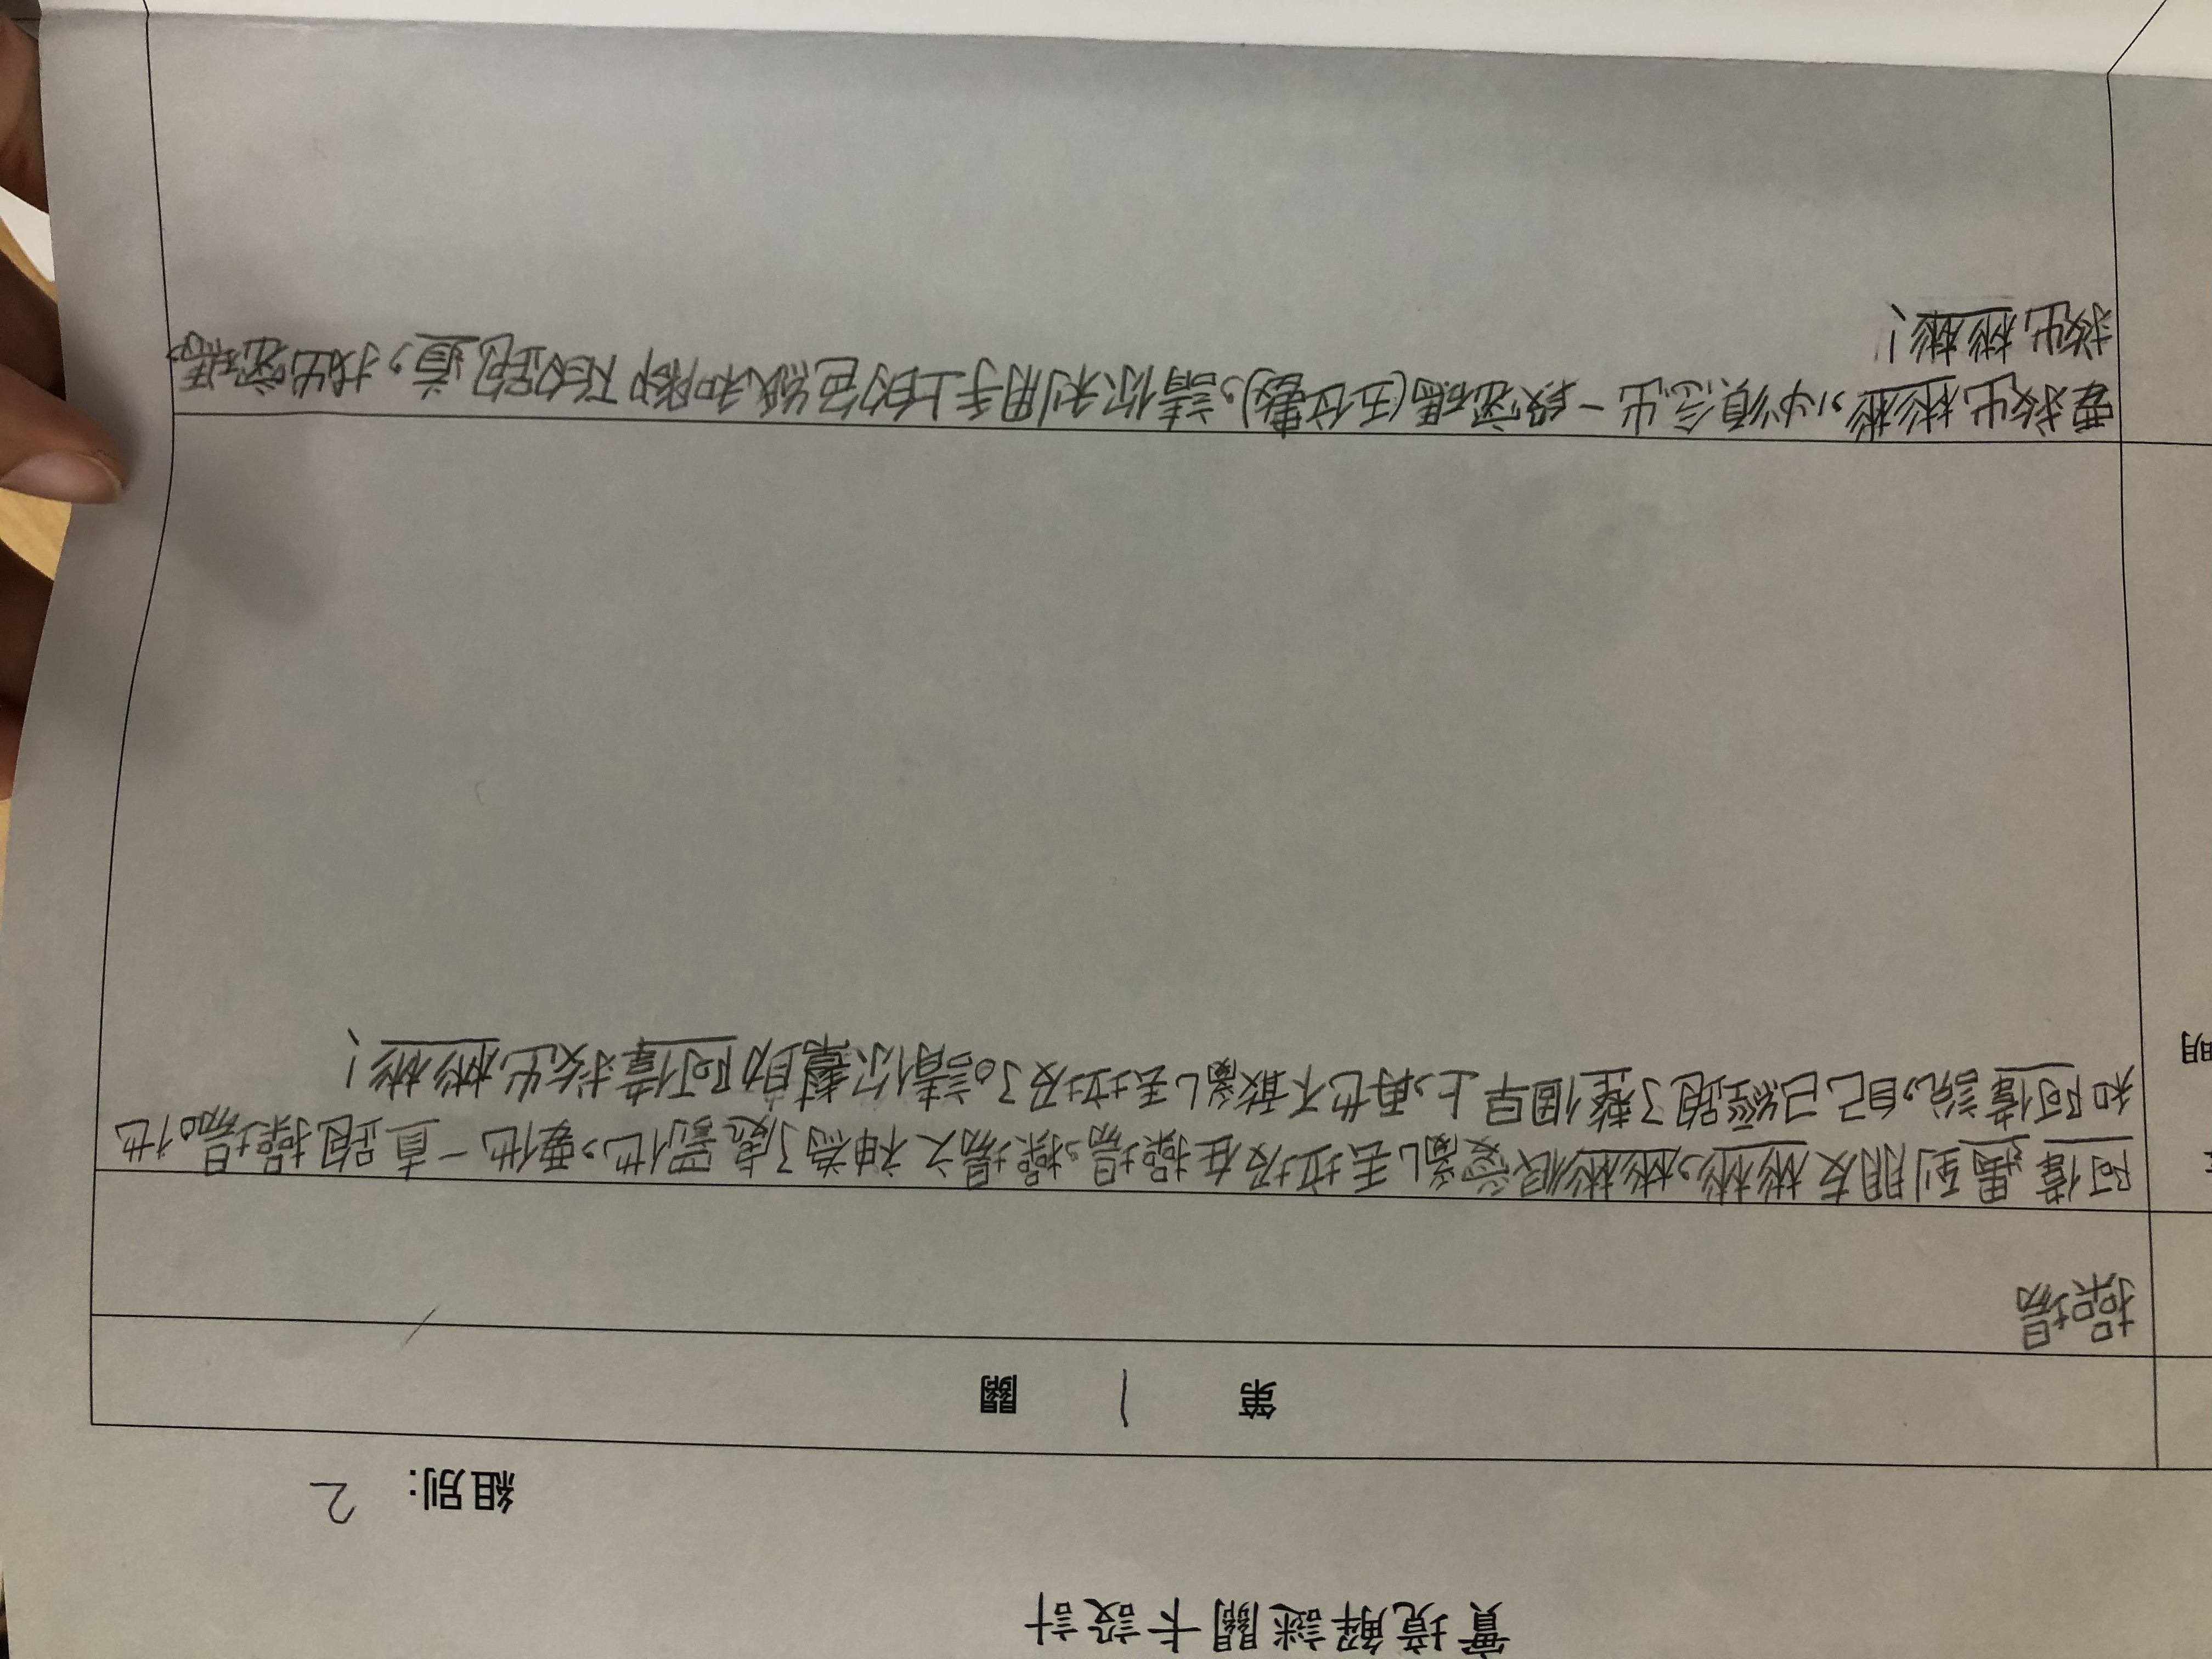 實境解謎關卡設計
組別: 2
第 1 關
操場
阿偉遇到朋友彬彬,彬彬很愛亂丟垃圾在操場,操場之神為了處罰他,要他一直跑操場。他
和阿偉說,自己已經跑了整個早上,再也不敢亂丟垃圾了。請你幫助阿偉救出彬彬!
明
要救出彬彬,必須念出一段密碼(五位數),請你利用手上的色紙和腳下的跑道,找出密碼,
救出彬彬!